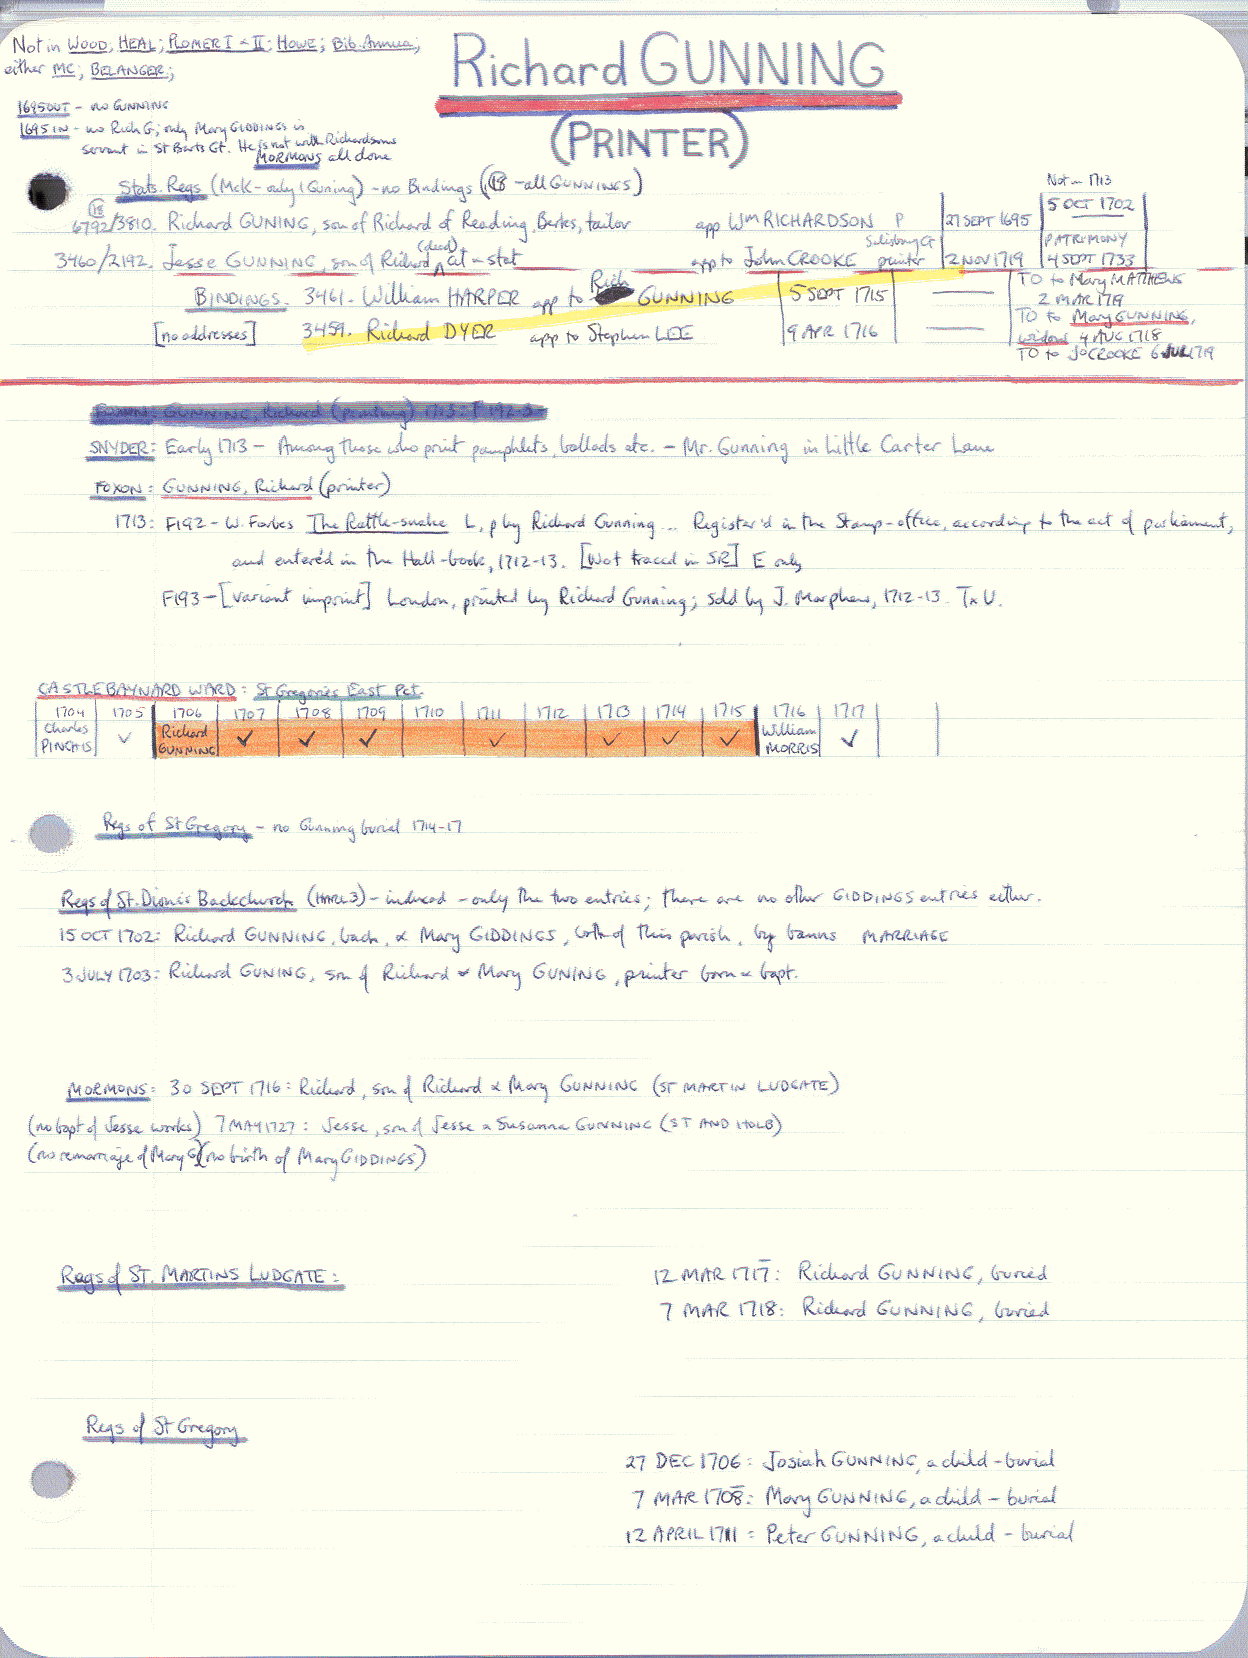 Not in WOOD; HEAL; PLOMER I & II; HOWE; Bib. Annua;
either MC; BELANGER;
Richard GUNNING
(PRINTER)
1695 OUT - no GUNNING
1695 IN - no Rich G; only Mary GIDDINGS is
servant in St Barts Gt. He is not with Richardsons
MORMONS all done
Not in 1713
Stats. Regs (McK - only 1 Guning) - no Bindings (18 - all GUNNINGS)
18
6792/3810. Richard GUNING, son of Richard of Reading, Berks, tailor app Wm RICHARDSON P 27 SEPT 1695 5 OCT 1702
3460/2192. Jesse GUNNING, son of Richard (dead) cit & stat app to John CROOKE Salisbury Ct printer 2 NOV 1719 PATRIMONY 4 SEPT 1733
BINDINGS. 3461. William HARPER app to Rich GUNNING 5 SEPT 1715 —— TO to Mary MATTHEWS 2 MAR 1719
[no addresses] 3459. Richard DYER app to Stephen LEE 9 APR 1716 —— TO to Mary GUNNING,
widow 4 AUG 1718
TO to Jo CROOKE 6 JUL 1719
FOXON: GUNNING, Richard (printing) 1713: F192-3
SNYDER: Early 1713 - Among those who print pamphlets, ballads etc. - Mr. Gunning in Little Carter Lane
FOXON: GUNNING, Richard (printer)
1713: F192 - W. Forbes The Rattle-snake L, p by Richard Gunning... Register'd in the Stamp-office, according to the act of parliament,
and entered in the Hall-book, 1712-13. [Not traced in SR] E only
F193 - [variant imprint] London, printed by Richard Gunning; sold by J. Morphew, 1712-13. TxU.
CASTLE BAYNARD WARD: St Gregories East Pct.
1704 1705 1706 1707 1708 1709 1710 1711 1712 1713 1714 1715 1716 1717
Charles PINCHIS ✓ Richard GUNNING ✓ ✓ ✓ ✓ ✓ ✓ ✓ William MORRIS ✓
Regs of St Gregory - no Gunning burial 1714-17
Regs of St. Dionis Backchurch (HARL 3) - indexed - only the two entries; there are no other GIDDINGS entries either.
15 OCT 1702: Richard GUNNING, bach, & Mary GIDDINGS, both of this parish, by banns MARRIAGE
3 JULY 1703: Richard GUNING, son of Richard & Mary GUNING, printer born & bapt.
MORMONS: 30 SEPT 1716: Richard, son of Richard & Mary GUNNING (ST MARTIN LUDGATE)
(no bapt of Jesse works) 7 MAY 1727: Jesse, son of Jesse & Susanna GUNNING (ST AND HOLB)
(no remarriage of Mary G) (no birth of Mary GIDDINGS)
Regs of ST. MARTINS LUDGATE:
12 MAR 1717: Richard GUNNING, buried
7 MAR 1718: Richard GUNNING, buried
Regs of St Gregory
27 DEC 1706: Josiah GUNNING, a child - burial
7 MAR 1708: Mary GUNNING, a child - burial
12 APRIL 1711: Peter GUNNING, a child - burial